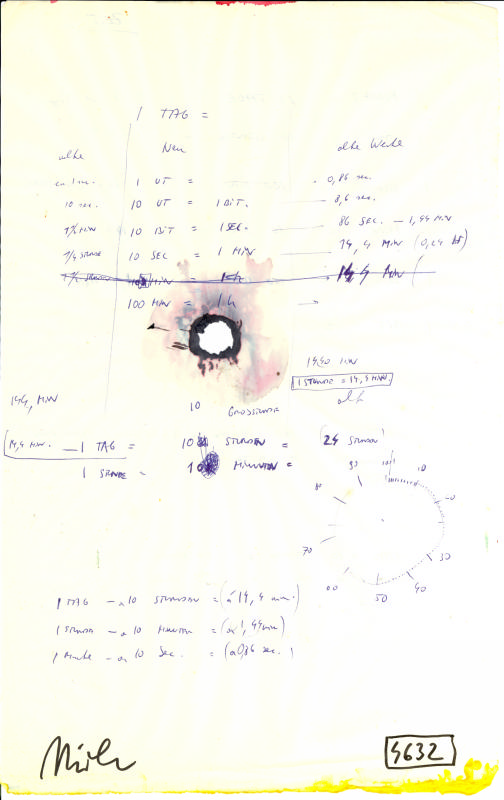 1 TAG =
alte Neu alte Werte
1 UT = 0,86 sec.
10 sec. 10 UT = 1 BIT. 8,6 sec.
10 BIT = 1 SEC. 86 SEC. — 1,44 MIN
1/4 STUNDE 10 SEC = 1 MIN 14,4 MIN
MIN = 1 h 144 MIN (
100 MIN = 1 h
1440 MIN
1 STUNDE = 14,4 MIN.
144, MIN 10 alt
14,4 MIN. — 1 TAG = 10 STUNDEN = (24 STUNDEN)
1 STUNDE = 10 MINUTEN =
90 100 10
80
70 30
60 40
50
1 TAG — 10 STUNDEN = (à 14,4 min.)
1 STUNDE — 10 MINUTEN = (à 1,44 min)
1 Minute — 10 Sec. = (à 0,86 sec.)
4632